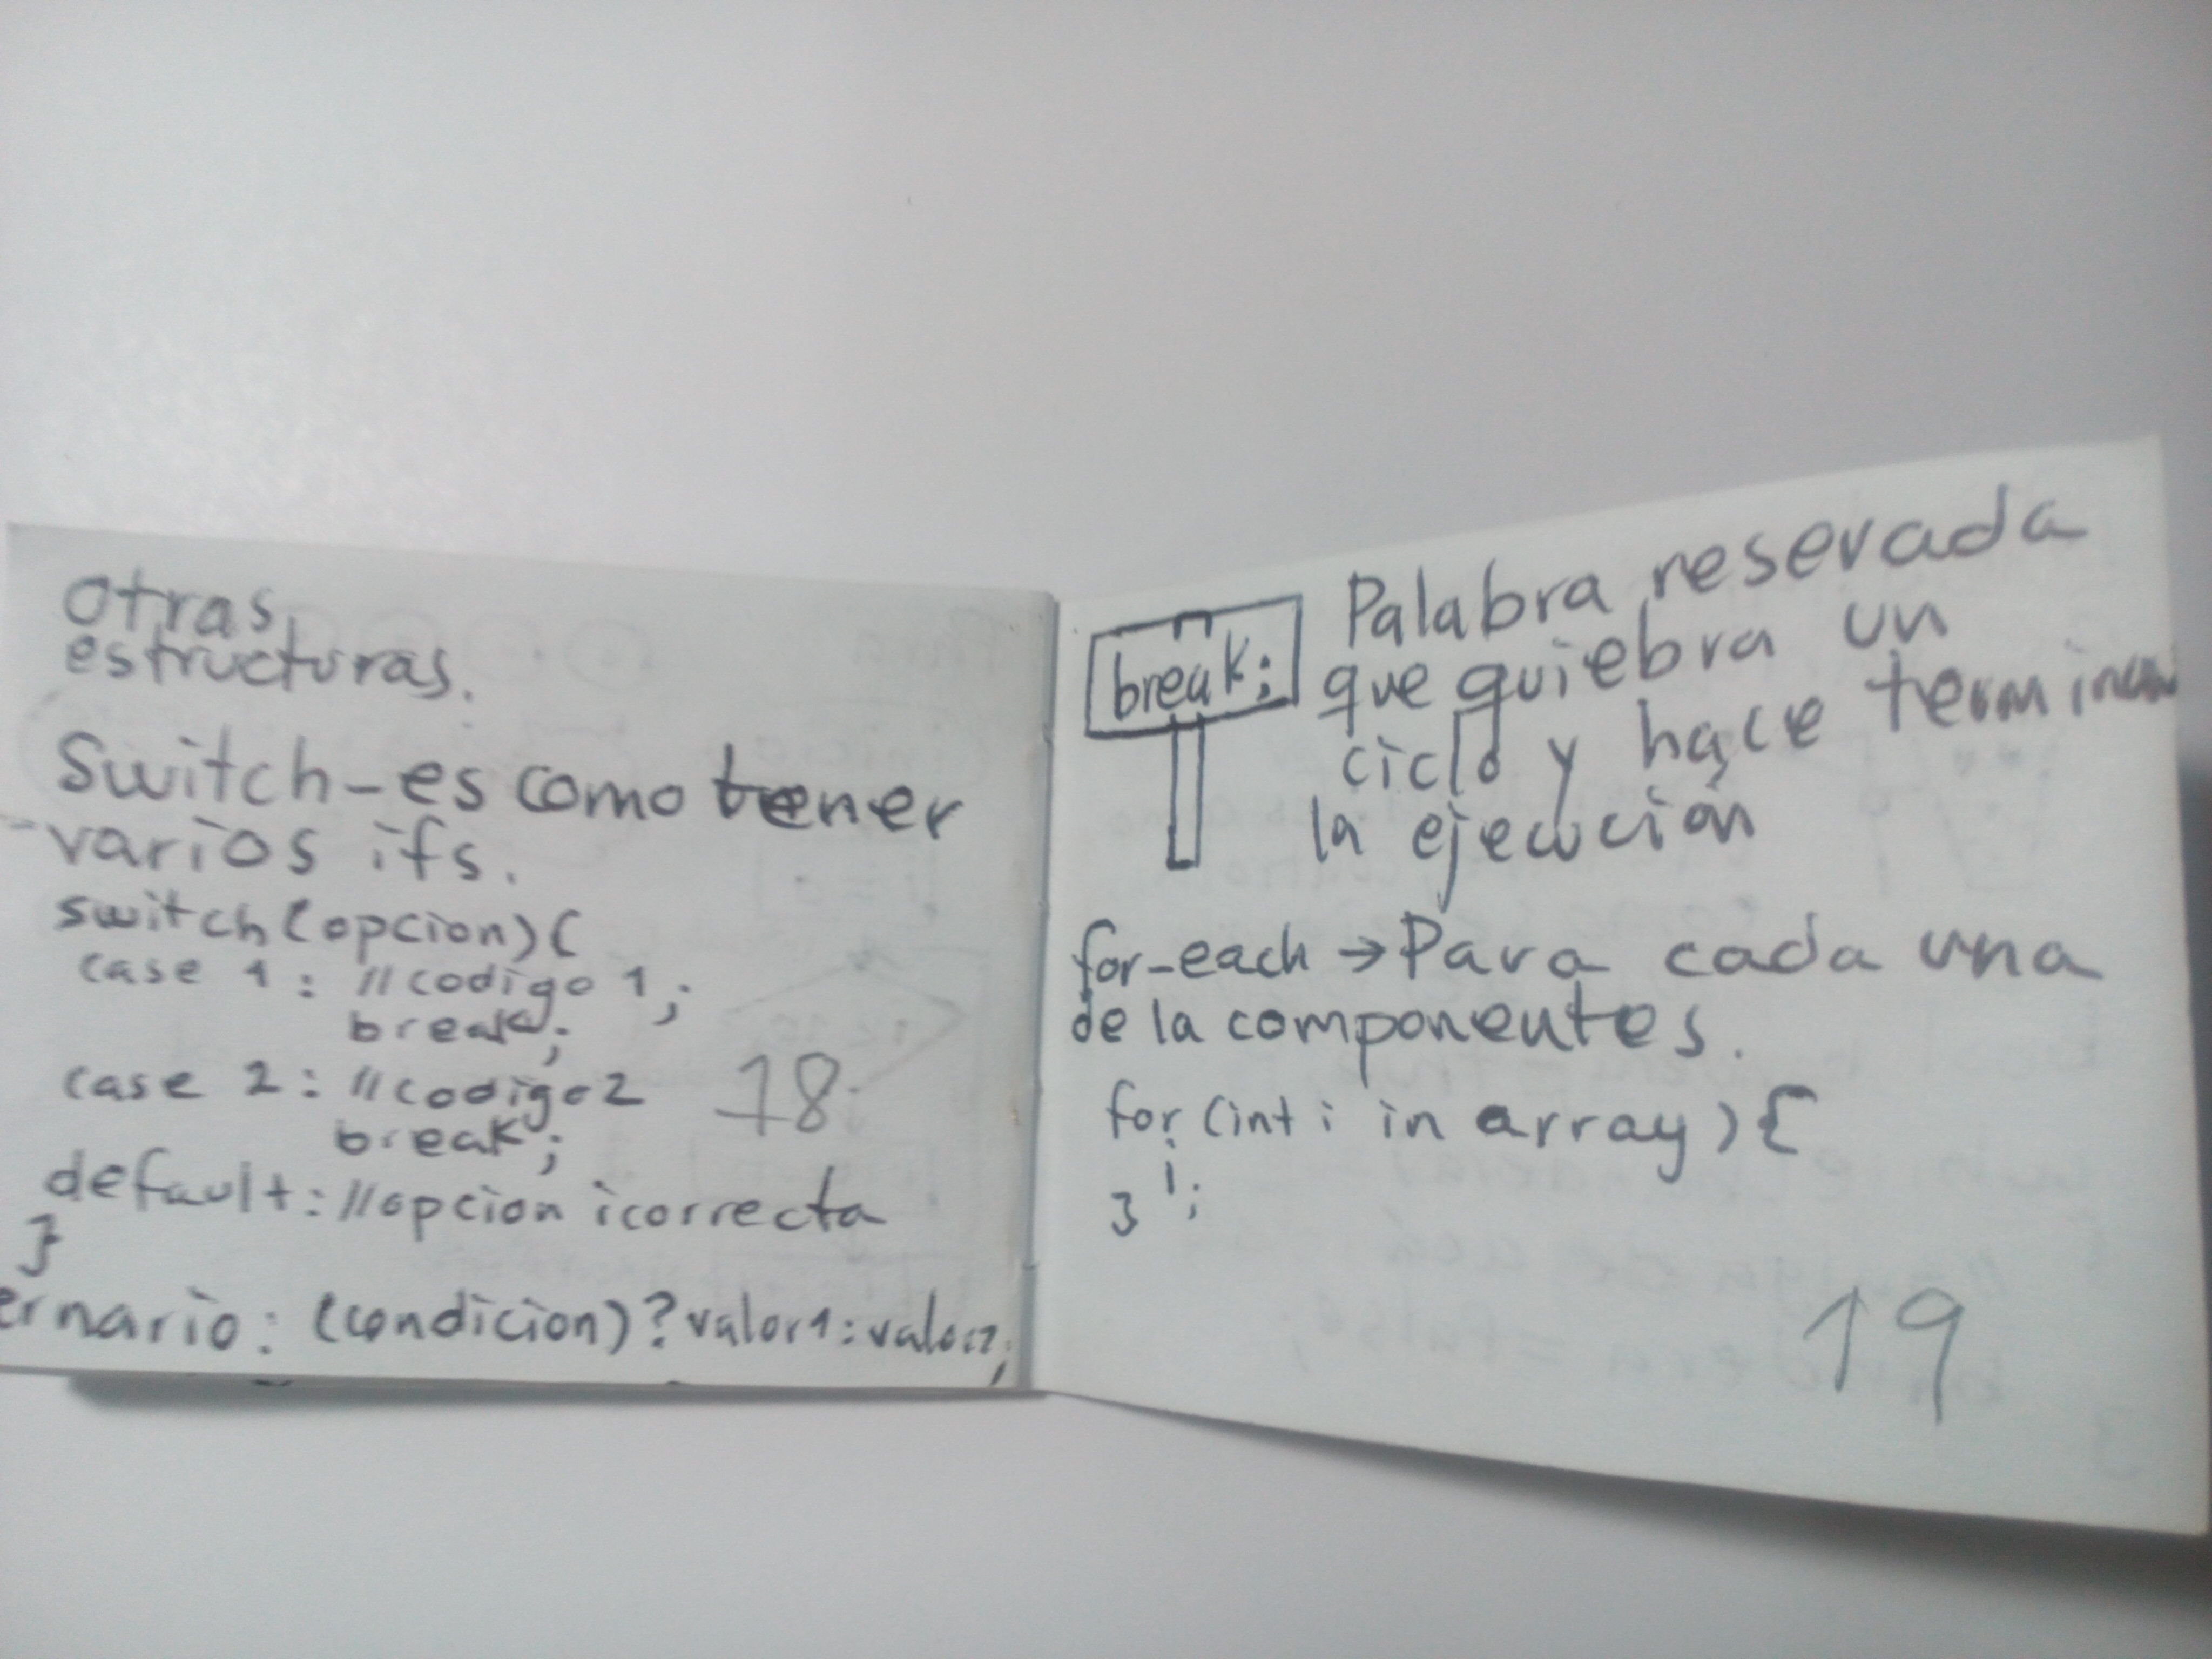 otras
estructuras.
Switch-es como tener
varios ifs.
switch(opcion){
case 1: //codigo 1;
break;
case 2: //codigo2
break;
default: //opcion icorrecta
}
ernario: (condicion)?valor1:valor2;
18
break;
Palabra reservada
que quiebra un
ciclo y hace terminar
la ejecución
for-each → Para cada una
de la componentes.
for (int i in array) {
i;
}
19